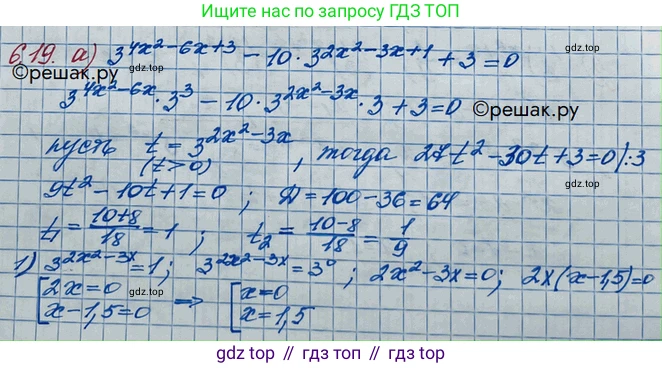 Ищите нас по запросу ГДЗ ТОП
6.19. а) 3^(4x²-6x+3) - 10·3^(2x²-3x+1) + 3 = 0
©решак.ру
3^(4x²-6x)·3³ - 10·3^(2x²-3x)·3 + 3 = 0 ©решак.ру
пусть t = 3^(2x²-3x) (t>0), тогда 27t² - 30t + 3 = 0 |:3
9t² - 10t + 1 = 0; D = 100 - 36 = 64
t₁ = (10+8)/18 = 1; t₂ = (10-8)/18 = 1/9
1) 3^(2x²-3x) = 1; 3^(2x²-3x) = 3⁰; 2x² - 3x = 0; 2x(x-1,5) = 0
[2x = 0 ⇒ [x = 0
[x - 1,5 = 0 [x = 1,5
gdz top // гдз топ // gdz.top // гдз.топ